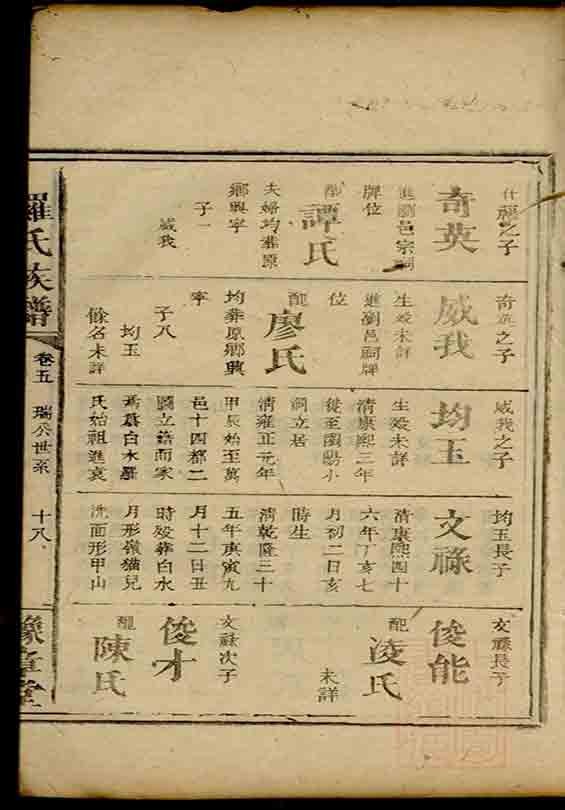 什福之子
奇英
進瀏邑宗祠
牌位
配
譚氏
夫婦均葬原
鄉興寧
子一
威我
奇英之子
威我
生歿未詳
進瀏邑祠牌
位
配
廖氏
均葬原鄉興
寧
子八
均玉
餘名未詳
威我之子
均玉
生歿未詳
清康熙三年
徙至瀏陽小
洞立居
清雍正元年
甲辰始至萬
邑十四都二
圖立籍而家
焉葺白水羅
氏始祖進袁
均玉長子
文祿
清康熙四十
六年丁亥七
月初二日亥
時生
清乾隆三十
五年庚寅九
月十二日丑
時歿葬白水
月形嶺猫兒
洗面形甲山
文祿長子
俊能
配
凌氏
未詳
文祿次子
俊才
配
陳氏
羅氏族譜
卷五
瑞公世系
十八
豫章堂